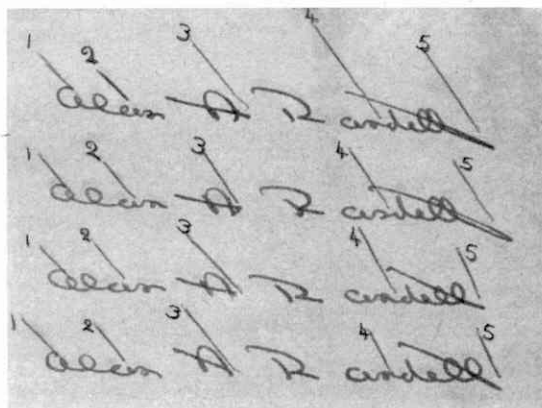 1 2 3 4 5
Alan A Randell
1 2 3 4 5
Alan A Randell
1 2 3 4 5
Alan A Randell
1 2 3 4 5
Alan A Randell